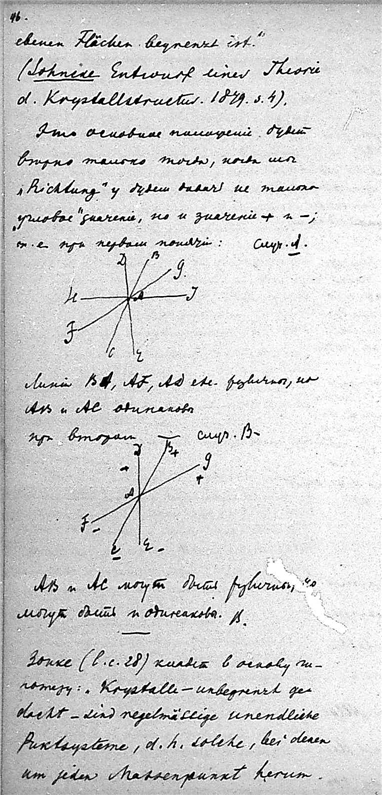 46.
ebenen Flächen begrenzt ist."
(Sohncke Entwurf einer Theorie
d. Krystallstructur. 1879. s. 4).
Это основное положеніе будетъ
вѣрно только тогда, когда мы
„Richtung" у будемъ давать не только
„угловое" значеніе, но и значеніе + и -;
т. е. при первомъ понятіи: случ. А.
D B
g
H A J
F
C E
Линіи BA, AF, AD etc. различны, но
AB и AC одинаковы
при второмъ — случ. B-
D B+
+ g
A +
F -
C - E -
AB и AC могутъ быть различны, но
могутъ быть и одинаковы. B.
Зонке (l. c. 28) кладетъ въ основу ги-
потезу: „Krystalle - unbegrenzt ge-
dacht - sind regelmässige unendliche
Punktsysteme, d. h. solche, bei denen
um jeden Massenpunkt herum.